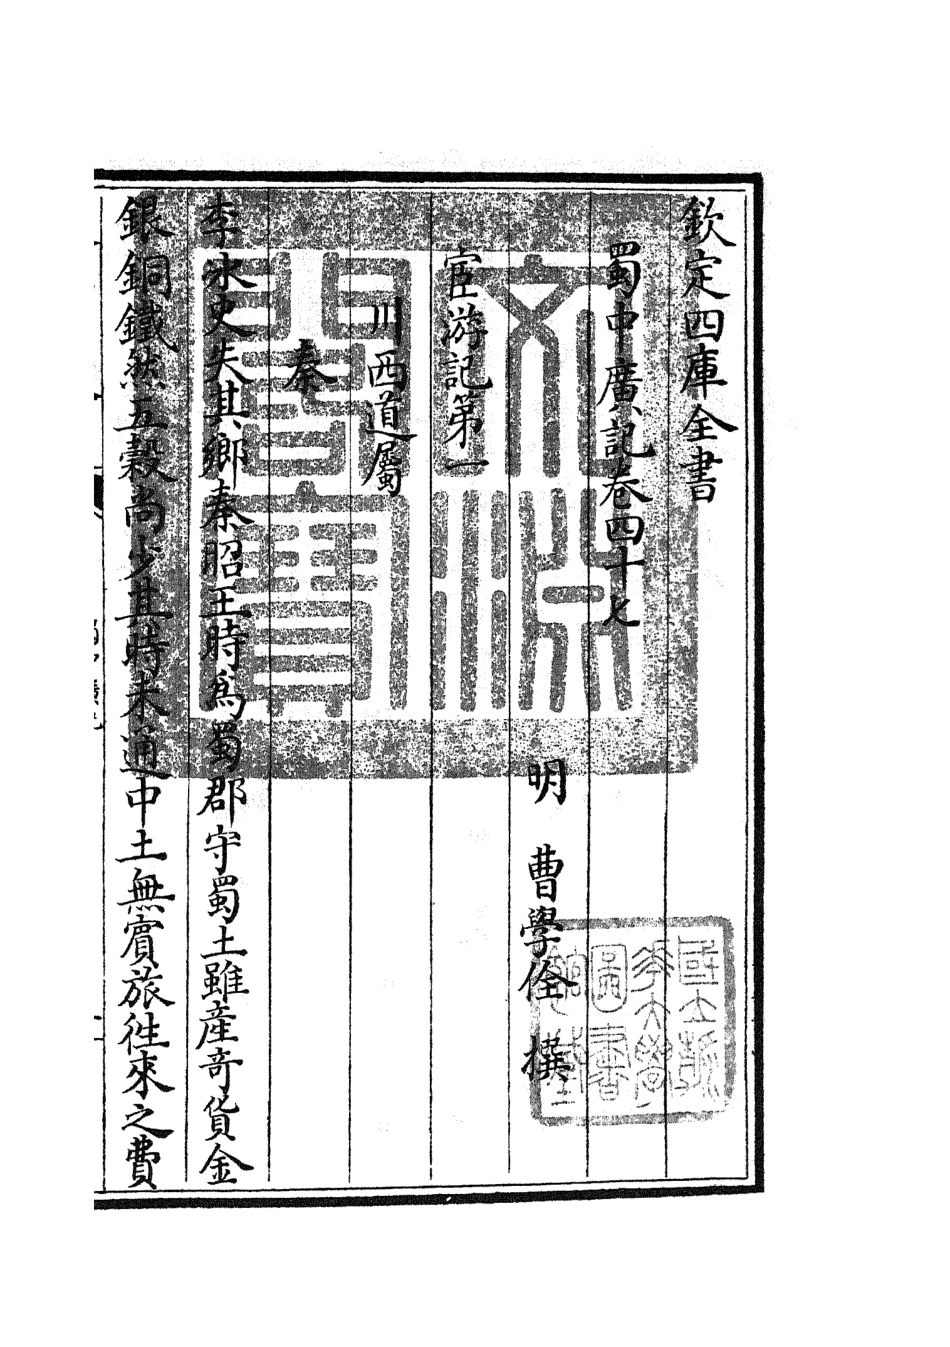 欽定四庫全書
蜀中廣記卷四十七
明 曹學佺 撰
宦游記第一
川西道屬
秦
李冰史失其鄉秦昭王時為蜀郡守蜀土雖產奇貨金
銀銅鐵然五穀尚少其時未通中土無賓旅徃來之費
文淵閣寶
國立浙江大學圖書館藏